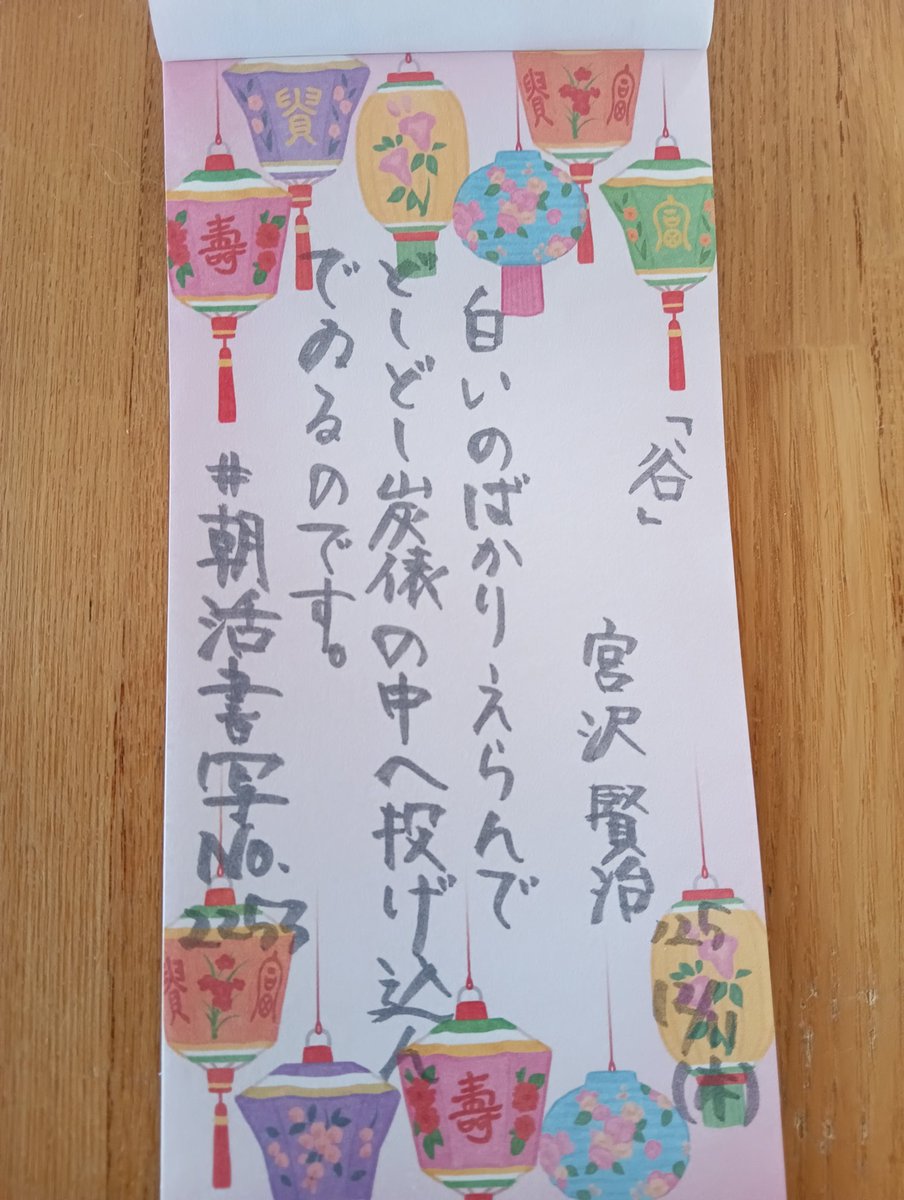 「谷」
宮沢賢治
'25
(木)
白いのばかりえらんで
どしどし炭俵の中へ投げ込ん
でゐるのです。
#朝活書写No.
2253
富
富
寿
富
寿